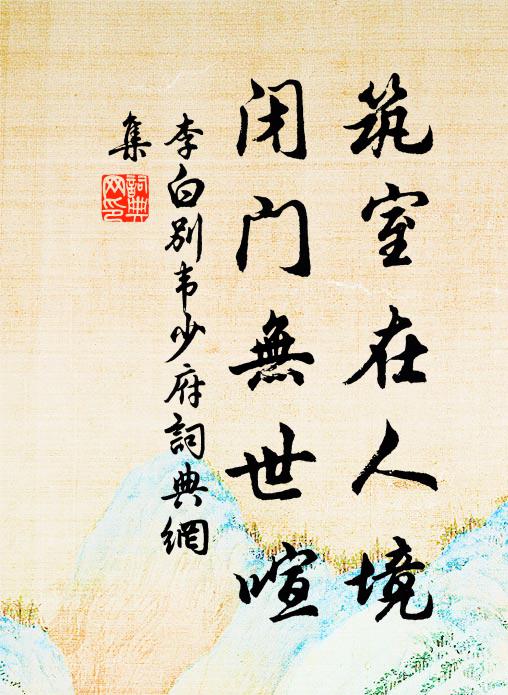 筑室在人境
闭门無世喧
李白别韦少府詞典網
集
詞典
网印